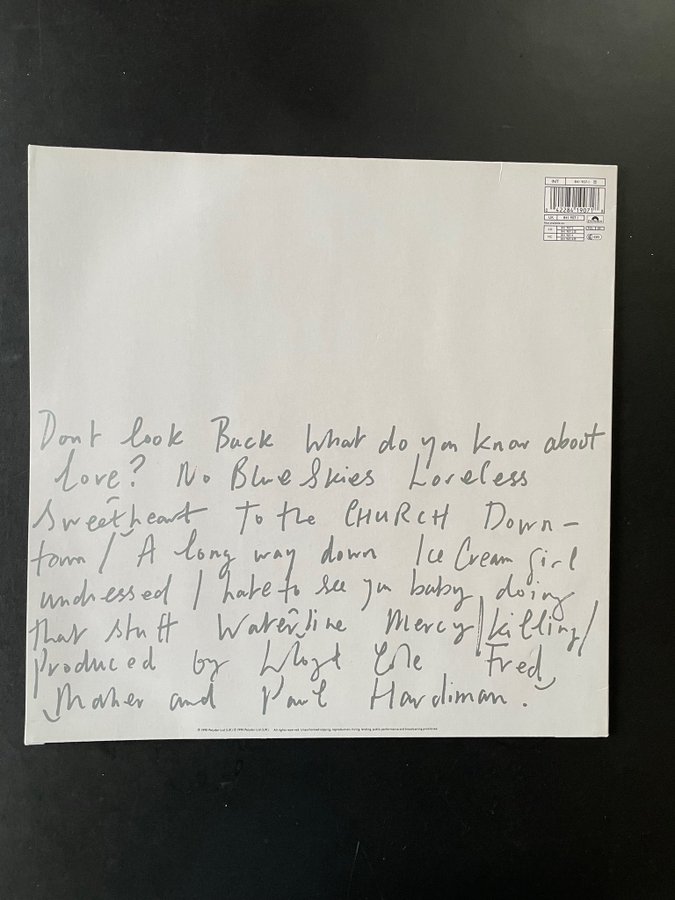 INT
0 42284 19071
Dont look Back What do you know about
Love? No Blue Skies Loveless
Sweetheart To the CHURCH Down-
town / A long way down Ice Cream girl
undressed I hate to see you baby doing
that stuff Waterline Mercy/killing/
Produced by Lloyd Cole Fred
Maher and Paul Hardiman.